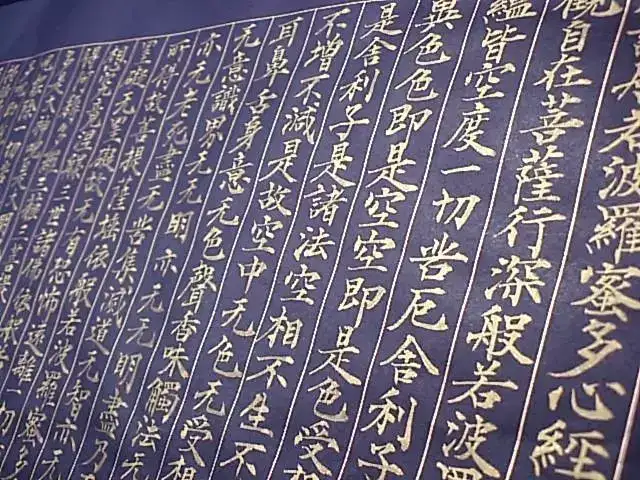 若波羅蜜多心經
觀自在菩薩行深般若波羅
蘊皆空度一切苦厄舍利子
異色色即是空空即是色受想
是舍利子是諸法空相不生不
不增不減是故空中无色无受想
耳鼻舌身意无色聲香味觸法无
无意識界无无明亦无无明盡乃
亦无老死盡无苦集滅道无智亦无
所得故菩提薩埵依般若波羅蜜多
罣礙无罣礙故无有恐怖遠離一切
想究竟涅槃三世諸佛依
得阿耨多羅三藐三菩提
是大神